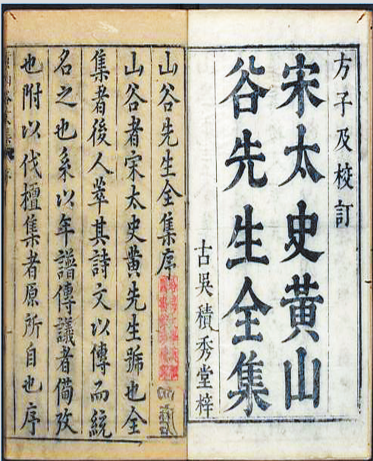 方子及校訂
宋太史黄山
谷先生全集
古吳積秀堂梓
山谷先生全集序
山谷者宋太史黄先生號也全
集者後人萃其詩文以傳而統
名之也系以年譜傳議者備攷
也附以伐檀集者原所自也序